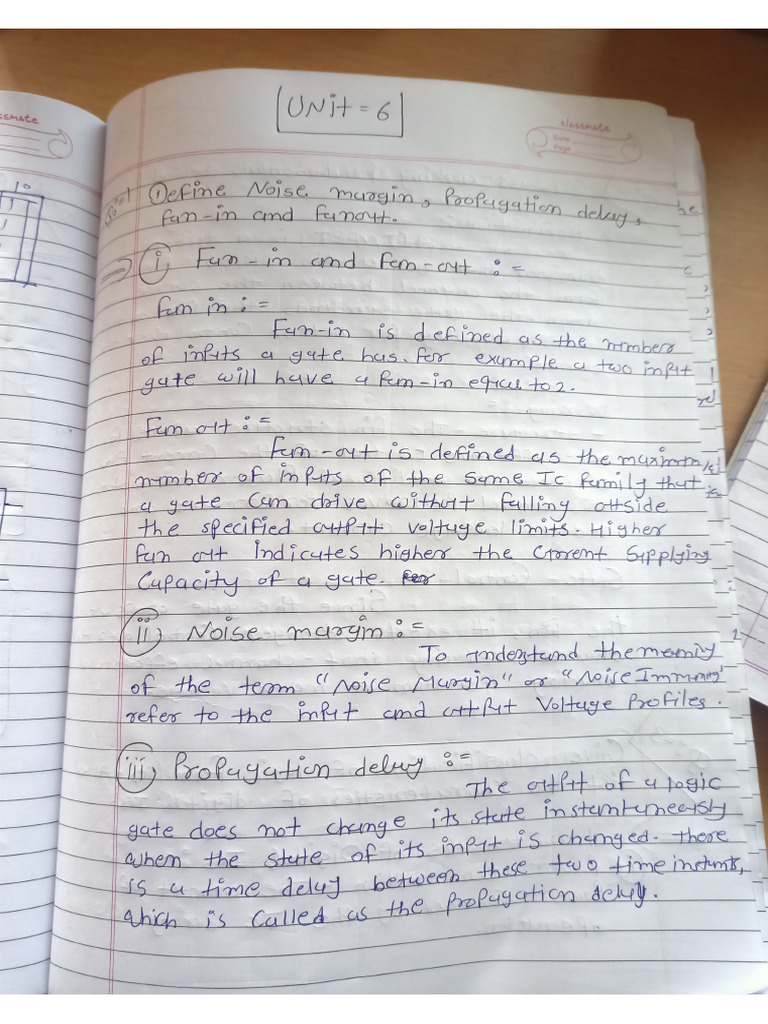 UNit = 6
classmate
Date
Page
① Define Noise margin, Propagation delay,
fan-in and fanout.
i, Fan-in and fan-out :=
fan in :=
Fan-in is defined as the number
of inputs a gate has. for example a two input
gate will have a fan-in equal to 2.
Fan out :=
Fan-out is defined as the maximum
number of inputs of the same Ic family that
a gate can drive without falling outside
the specified output voltage limits. Higher
fan out indicates higher the current supplying
capacity of a gate.
ii, Noise margin :=
To understand the meaning
of the term "Noise Margin" or "Noise Immunity"
refer to the input and output Voltage Profiles.
iii, Propagation delay :=
The output of a logic
gate does not change its state instantaneously
when the state of its input is changed. there
is a time delay between these two time instants,
which is called as the propagation delay.